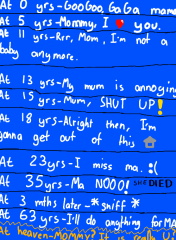 At 0 yrs-GooGoo, GaGa mama
At 5 yrs-Mommy, I ❤ you.
At 11 yrs-Rrr, Mom, I'm not a
baby any more.
At 13 yrs-My mum is annoying
At 15 yrs-Mum, SHUT UP!
At 18 yrs-Alright then, I'm
gonna get out of this 🏠
At 23 yrs-I miss ma. :(
At 35 yrs-Ma NOOO! SHE DIED
At 3 mths later-*sniff*
At 63 yrs-I'll do anything for MA
At heaven-Mommy? It is really U?